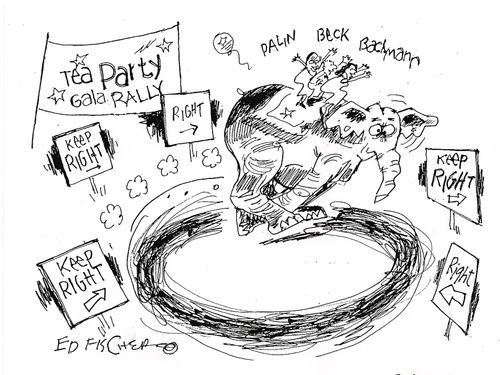 PALIN BECK Bachmann
Tea Party
Gala RALLY
RIGHT
KEEP
RIGHT
KEEP
RIGHT
KEEP
RIGHT
Right
ED FISCHER